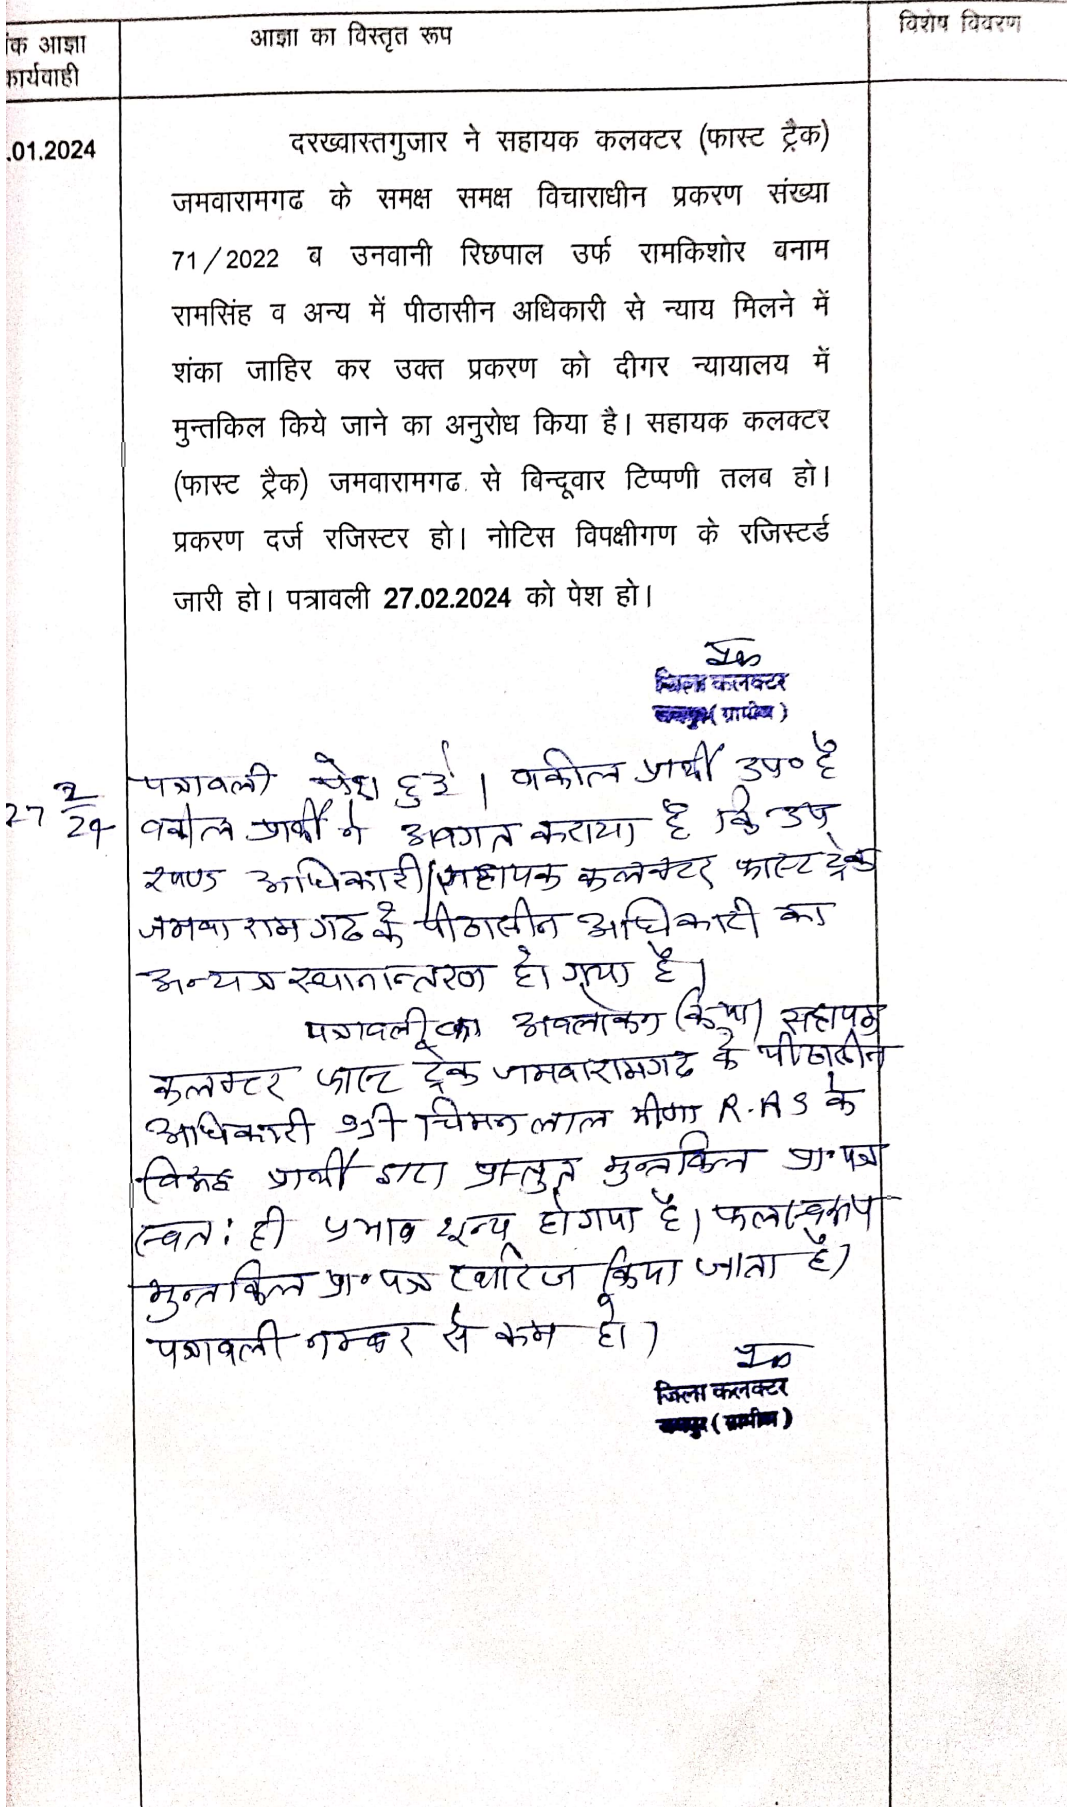 ंक आज्ञा
कार्यवाही
आज्ञा का विस्तृत रूप
विशेष विवरण
.01.2024
दरख्वास्तगुजार ने सहायक कलक्टर (फास्ट ट्रैक)
जमवारामगढ के समक्ष समक्ष विचाराधीन प्रकरण संख्या
71/2022 ब उनवानी रिछपाल उर्फ रामकिशोर बनाम
रामसिंह व अन्य में पीठासीन अधिकारी से न्याय मिलने में
शंका जाहिर कर उक्त प्रकरण को दीगर न्यायालय में
मुन्तकिल किये जाने का अनुरोध किया है। सहायक कलक्टर
(फास्ट ट्रैक) जमवारामगढ. से बिन्दूवार टिप्पणी तलब हो।
प्रकरण दर्ज रजिस्टर हो। नोटिस विपक्षीगण के रजिस्टर्ड
जारी हो। पत्रावली 27.02.2024 को पेश हो।
जिला कलक्टर
जयपुर (ग्रामीण)
27 2/24
पत्रावली पेश हुई। वकील प्रार्थी उप० है
वकील प्रार्थी ने अवगत कराया है कि उप
खण्ड अधिकारी/सहायक कलक्टर फास्ट ट्रेक
जमवारामगढ के पीठासीन अधिकारी का
अन्यत्र स्थानान्तरण हो गया है।
पत्रावली का अवलोकन किया। सहायक
कलक्टर फास्ट ट्रेक जमवारामगढ के पीठासीन
अधिकारी श्री चिमन लाल मीणा R.A.S के
विरूद्ध प्रार्थी द्वारा प्रस्तुत मुन्तकिल प्रा॰पत्र
स्वत: ही प्रभाव शून्य हो गया है। फलस्वरूप
मुन्तकिल प्रा॰पत्र खारिज किया जाता है।
पत्रावली नम्बर से कम हो।
जिला कलक्टर
जयपुर (ग्रामीण)